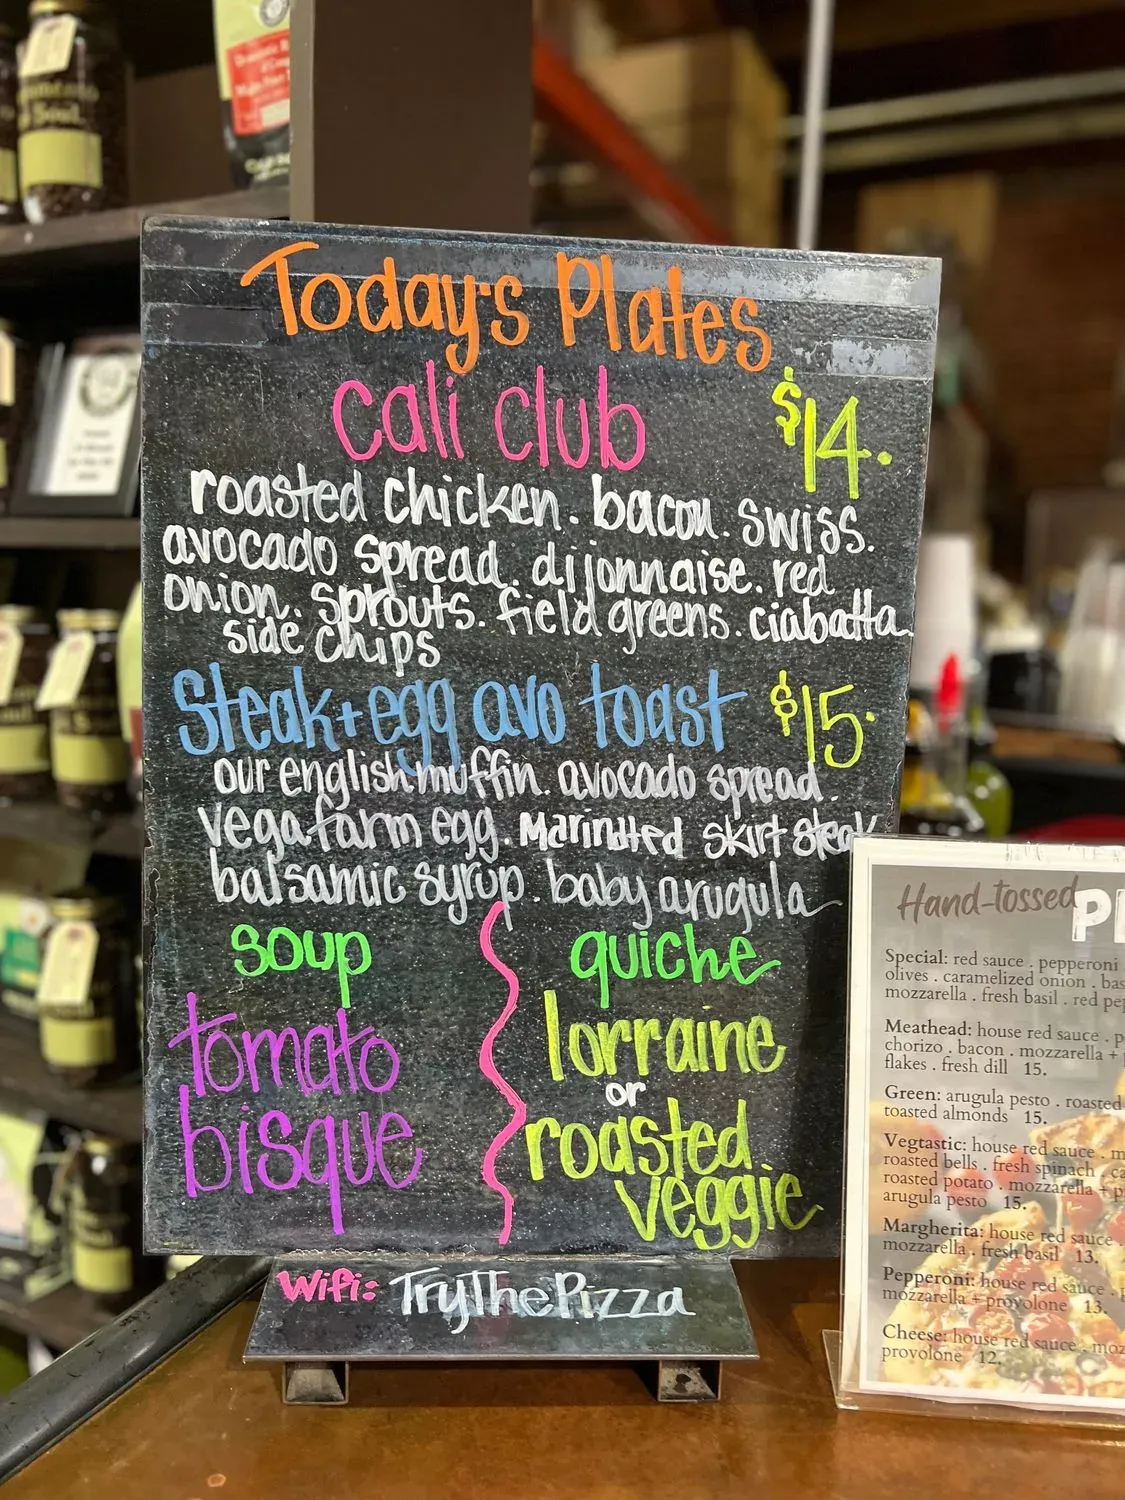 Today's Plates
cali club $14.
roasted chicken. bacon. swiss.
avocado spread. dijonnaise. red
onion. sprouts. field greens. ciabatta
side chips
Steak+egg avo toast $15.
our english muffin. avocado spread.
vega farm egg. Marinated skirt steak
balsamic syrup. baby arugula
soup
tomato
bisque
quiche
lorraine
or
roasted
veggie
Wifi: TryThePizza
Hand-tossed
Special: red sauce . pepperoni
olives . caramelized onion .
mozzarella . fresh basil . red
Meathead: house red sauce .
chorizo . bacon . mozzarella +
flakes . fresh dill 15.
Green: arugula pesto . roasted
toasted almonds 15.
Vegtastic: house red sauce .
roasted bells . fresh spinach .
roasted potato . mozzarella +
arugula pesto 15.
Margherita: house red sauce
mozzarella . fresh basil 13.
Pepperoni: house red sauce .
mozzarella + provolone 13.
Cheese: house red sauce .
provolone 12.